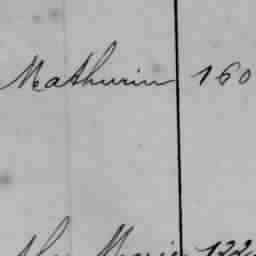 Mathurin 160
Marie 122